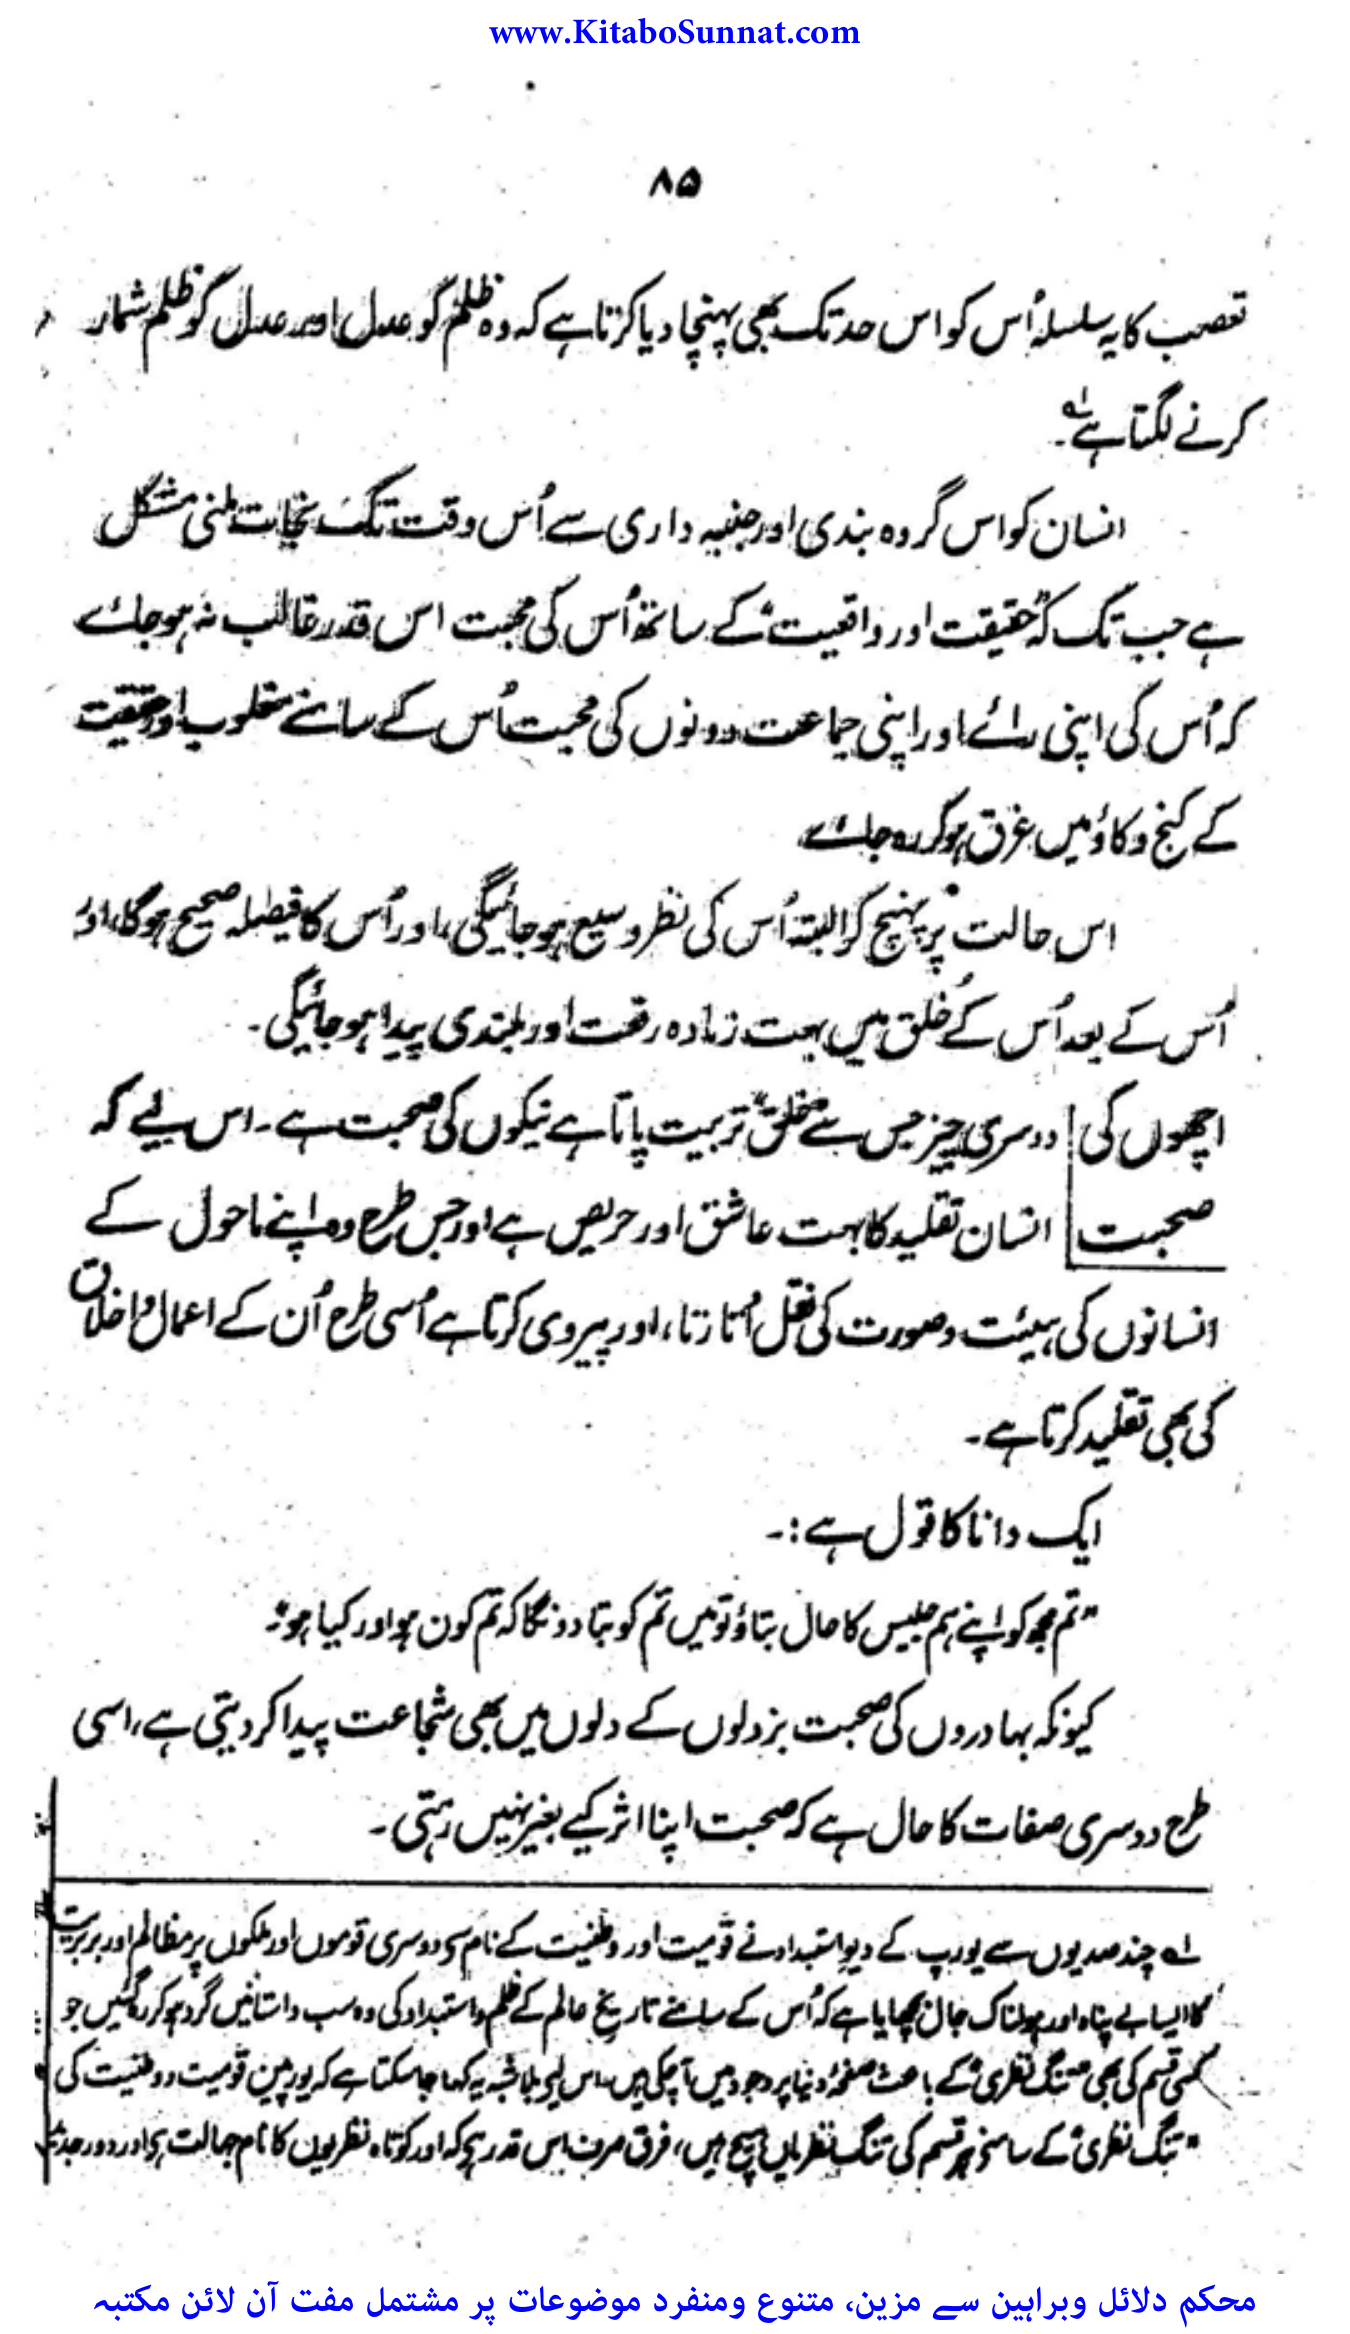 www.KitaboSunnat.com
۸۵
تعصب کا یہ سلسلہ اُس کو اس حد تک بھی پہنچا دیا کرتا ہے کہ وہ ظلم کو عدل اور عدل کو ظلم شمار
کرنے لگتا ہے۔ ؎۱
انسان کو اس گروہ بندی اور جنبہ داری سے اُس وقت تک نجات ملنی مشکل
ہے جب تک کہ "حقیقت اور واقعیت" کے ساتھ اُس کی محبت اس قدر غالب نہ ہو جائے
کہ اُس کی اپنی رائے اور اپنی جماعت دونوں کی محبت اُس کے سامنے مغلوب اور حقیقت
کے کنج وکاؤ میں غرق ہو کر رہ جائے
اس حالت پر پہنچ کر البتہ اُس کی نظر وسیع ہو جائیگی، اور اُس کا فیصلہ صحیح ہوگا، اور
اُس کے بعد اُس کے خُلق میں بہت زیادہ رفعت اور بلندی پیدا ہو جائیگی۔
اچھوں کی دوسری چیز جس سے "خلق" تربیت پاتا ہے نیکوں کی صحبت ہے۔ اس لیے کہ
صحبت انسان تقلید کا بہت عاشق اور حریص ہے اور جس طرح وہ اپنے ماحول کے
انسانوں کی ہیئت وصورت کی نقل اُتارتا، اور پیروی کرتا ہے اُسی طرح اُن کے اعمال و اخلاق
کی بھی تقلید کرتا ہے۔
ایک دانا کا قول ہے :۔
"تم مجھ کو اپنے ہم جلیس کا حال بتاؤ تو میں تم کو بتا دونگا کہ تم کون ہو اور کیا ہو"۔
کیونکہ بہادروں کی صحبت بزدلوں کے دلوں میں بھی شجاعت پیدا کر دیتی ہے، اسی
طرح دوسری صفات کا حال ہے کہ صحبت اپنا اثر کیے بغیر نہیں رہتی۔
؎۱ چند صدیوں سے یورپ کے دیو استبداد نے قومیت اور وطنیت کے نام سے دوسری قوموں اور ملکوں پر مظالم اور بربریت
کا ایسا بے پناہ اور ہولناک جال بچھایا ہے کہ اُس کے سامنے تاریخ عالم کے ظلم واستبداد کی وہ سب داستانیں گرد ہو کر رہ گئیں جو
کسی قسم کی بھی "تنگ نظری" کے باعث صفحۂ دنیا پر وجود میں آ چکی ہیں، اس لیے بلاشبہ یہ کہا جا سکتا ہے کہ یورپین قومیت و وطنیت کی
"تنگ نظری" کے سامنے ہر قسم کی تنگ نظریاں ہیچ ہیں، فرق صرف اس قدر ہے کہ اور کوتاہ نظریوں کا نام جہالت ہے اور دور جدید
محکم دلائل وبراہین سے مزین، متنوع ومنفرد موضوعات پر مشتمل مفت آن لائن مکتبہ